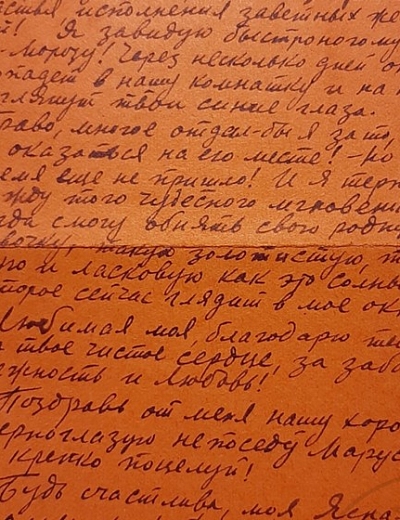 стья, исполнения заветных же
й! Я завидую быстроногому
-Морозу! Через несколько дней он
опадет в нашу комнатку и на н
глянут твои синие глаза.
раво, многое отдал-бы я за то,
оказаться на его месте! -Но
емя еще не пришло! И я терп
жду того чудесного мгновени
гда смогу обнять свою родну
вочку, такую золотистую, т
ую и ласковую как это солны
торое сейчас глядит в мое ок
Любимая моя, благодарю те
а твое чистое сердце, за забо
ежность и любовь!
Поздравь от меня нашу хоро
черноглазую непоседу Марус
крепко поцелуй!
Будь счастлива, моя Ясна